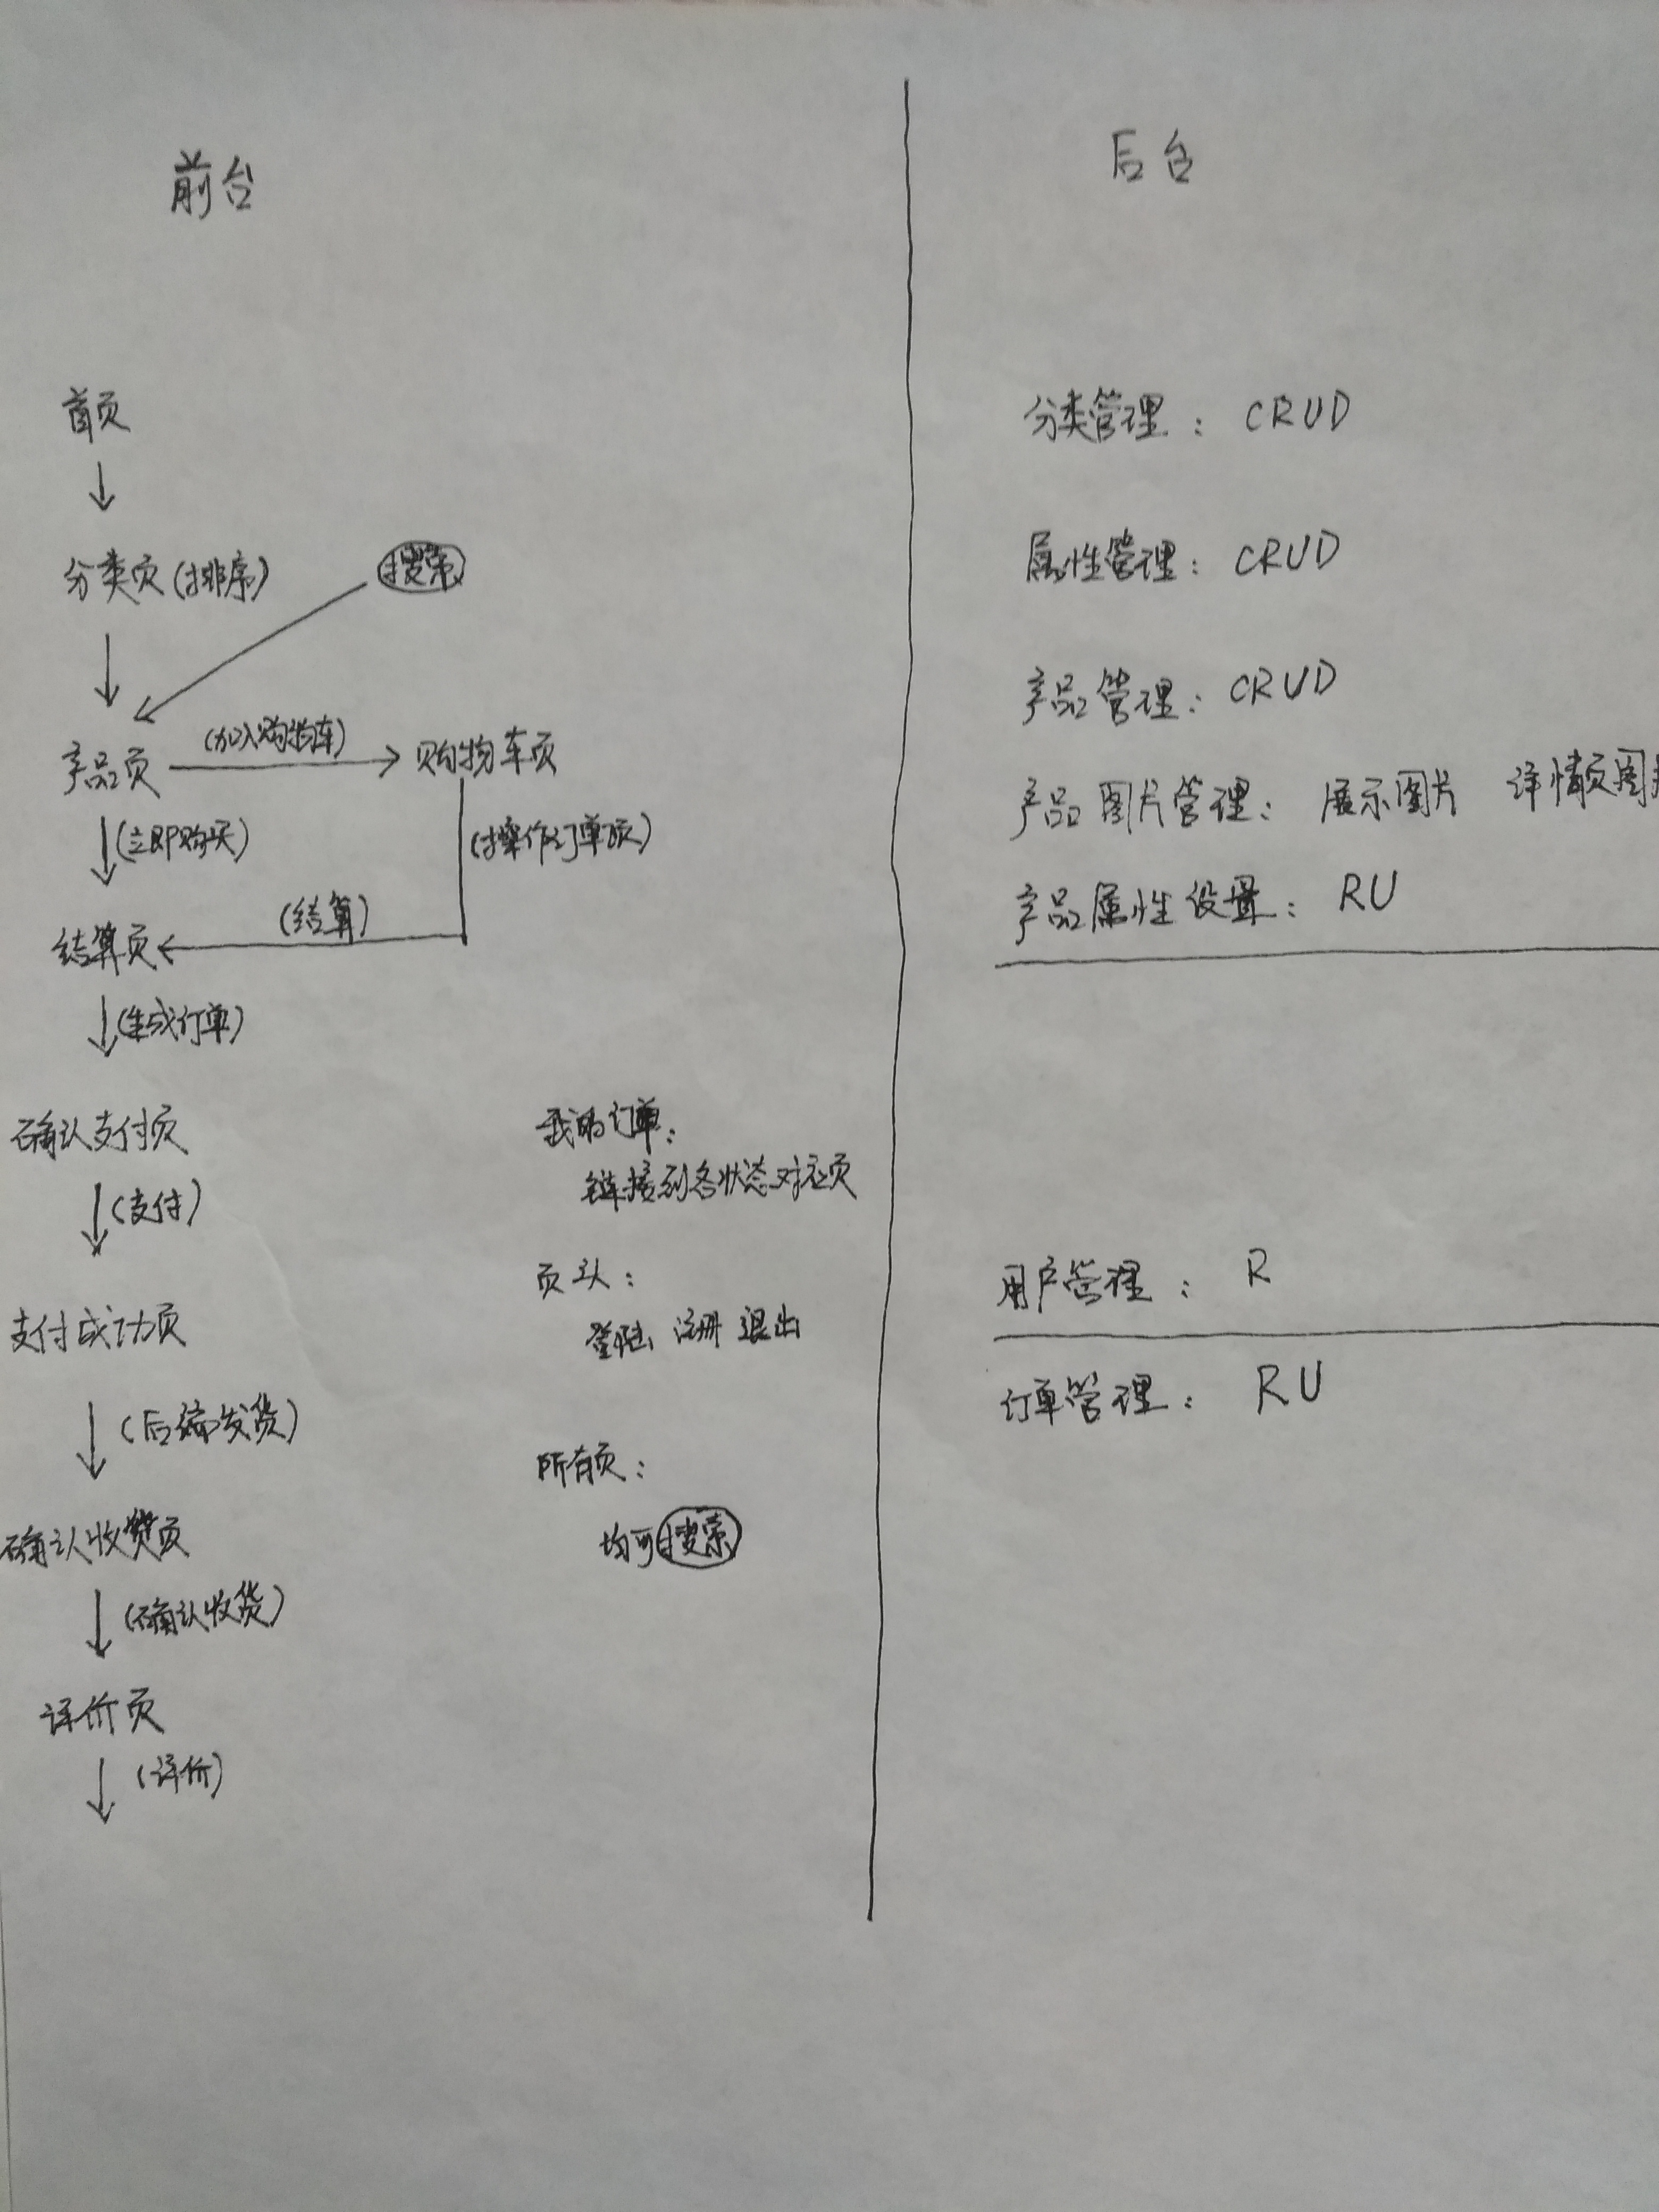 前台
首页
分类页(排序)
搜索
产品页
(加入购物车)
购物车页
(立即购买)
(操作订单项)
结算页
(结算)
(生成订单)
确认支付页
(支付)
支付成功页
(后端发货)
确认收货页
(确认收货)
评价页
(评价)
我的订单:
链接到各状态对应页
页头:
登陆 注册 退出
所有页:
均可搜索
后台
分类管理: CRUD
属性管理: CRUD
产品管理: CRUD
产品图片管理: 展示图片 详情页图
产品属性设置: RU
用户管理: R
订单管理: RU